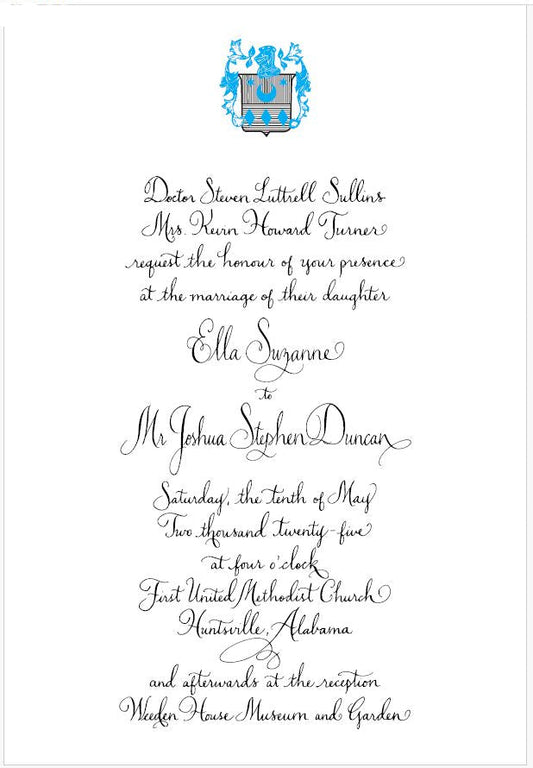 Doctor Steven Luttrell Sullins
Mrs. Keirn Howard Turner
request the honour of your presence
at the marriage of their daughter
Ella Suzanne
to
Mr Joshua Stephen Duncan
Saturday, the tenth of May
Two thousand twenty-five
at four o'clock
First United Methodist Church
Huntsville, Alabama
and afterwards at the reception
Weeden House Museum and Garden